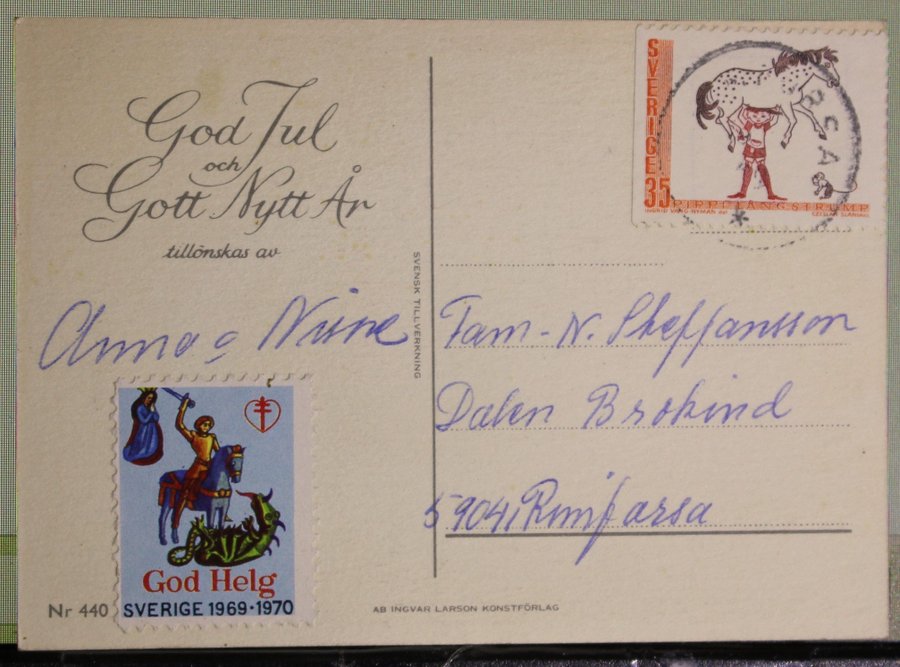 God Jul
och
Gott Nytt År
tillönskas av
Anna o
God Helg
SVERIGE 1969·1970
Nr 440
SVENSK TILLVERKNING
AB INGVAR LARSON KONSTFÖRLAG
SVERIGE
35
PIPPI LÅNGSTRUMP
INGRID VANG NYMAN del
CZESLAW SLANIA sc
Fam - N. Sheffansson
Dalen Brokind
59041 Rimforsa